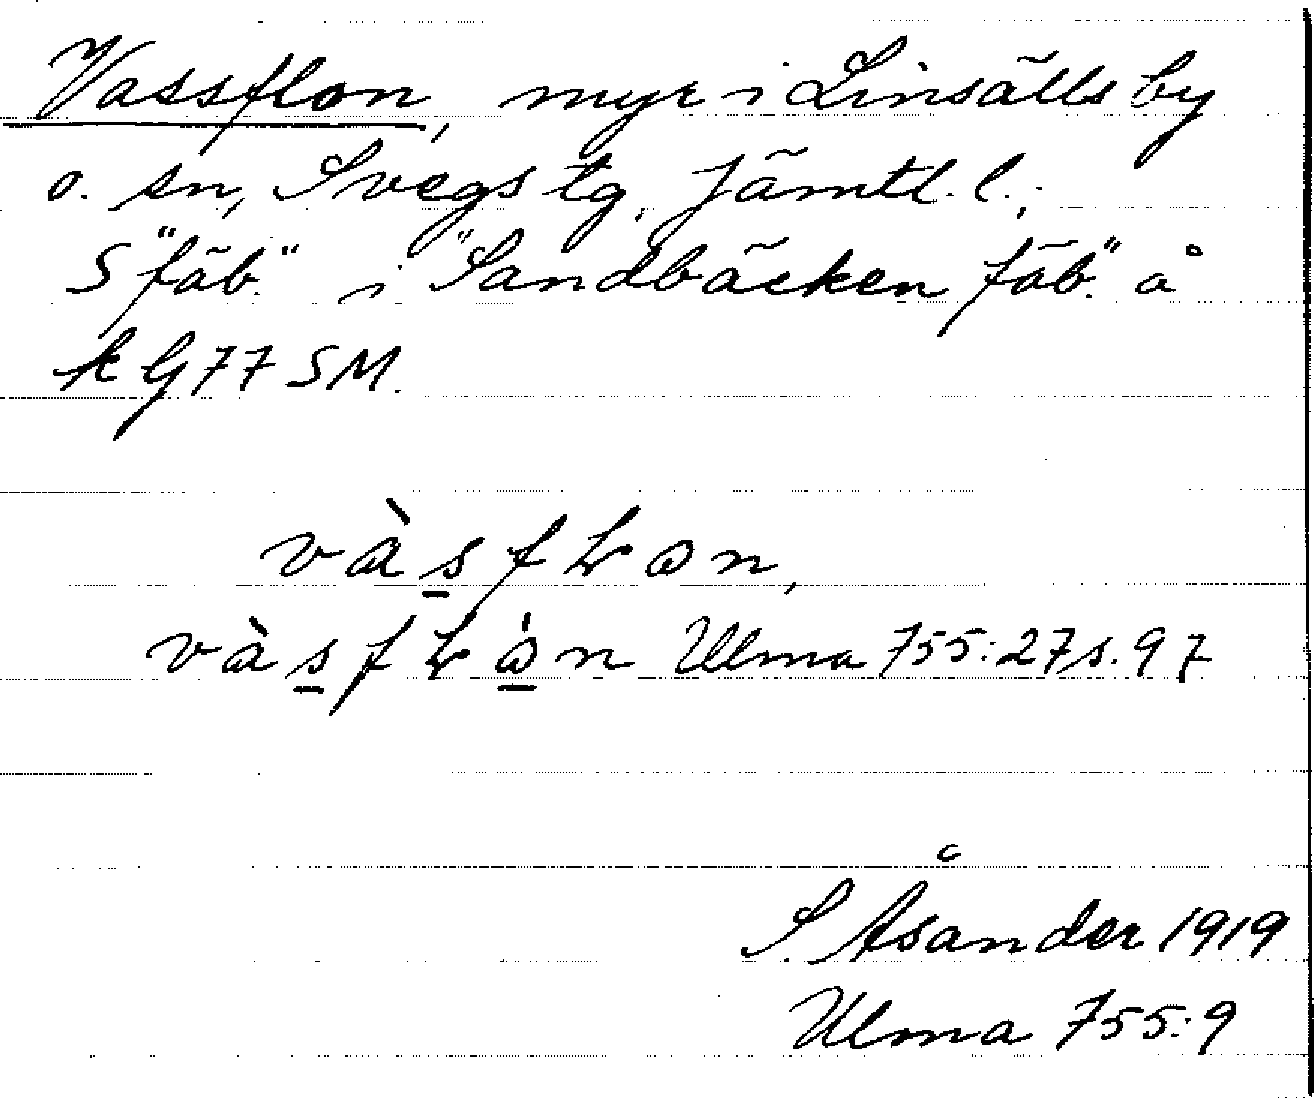 Vassflon, myr i Linsälls by
o. sn, Svegs tg, Jämtl. l.;
S "fäb." i "Sandbäcken fäb." å
k G77 SM.
vàsfꞭɷn,
vàsfꞭɷ̀n Ulma 755:27 s. 97
S. Åsander 1919
Ulma 755:9